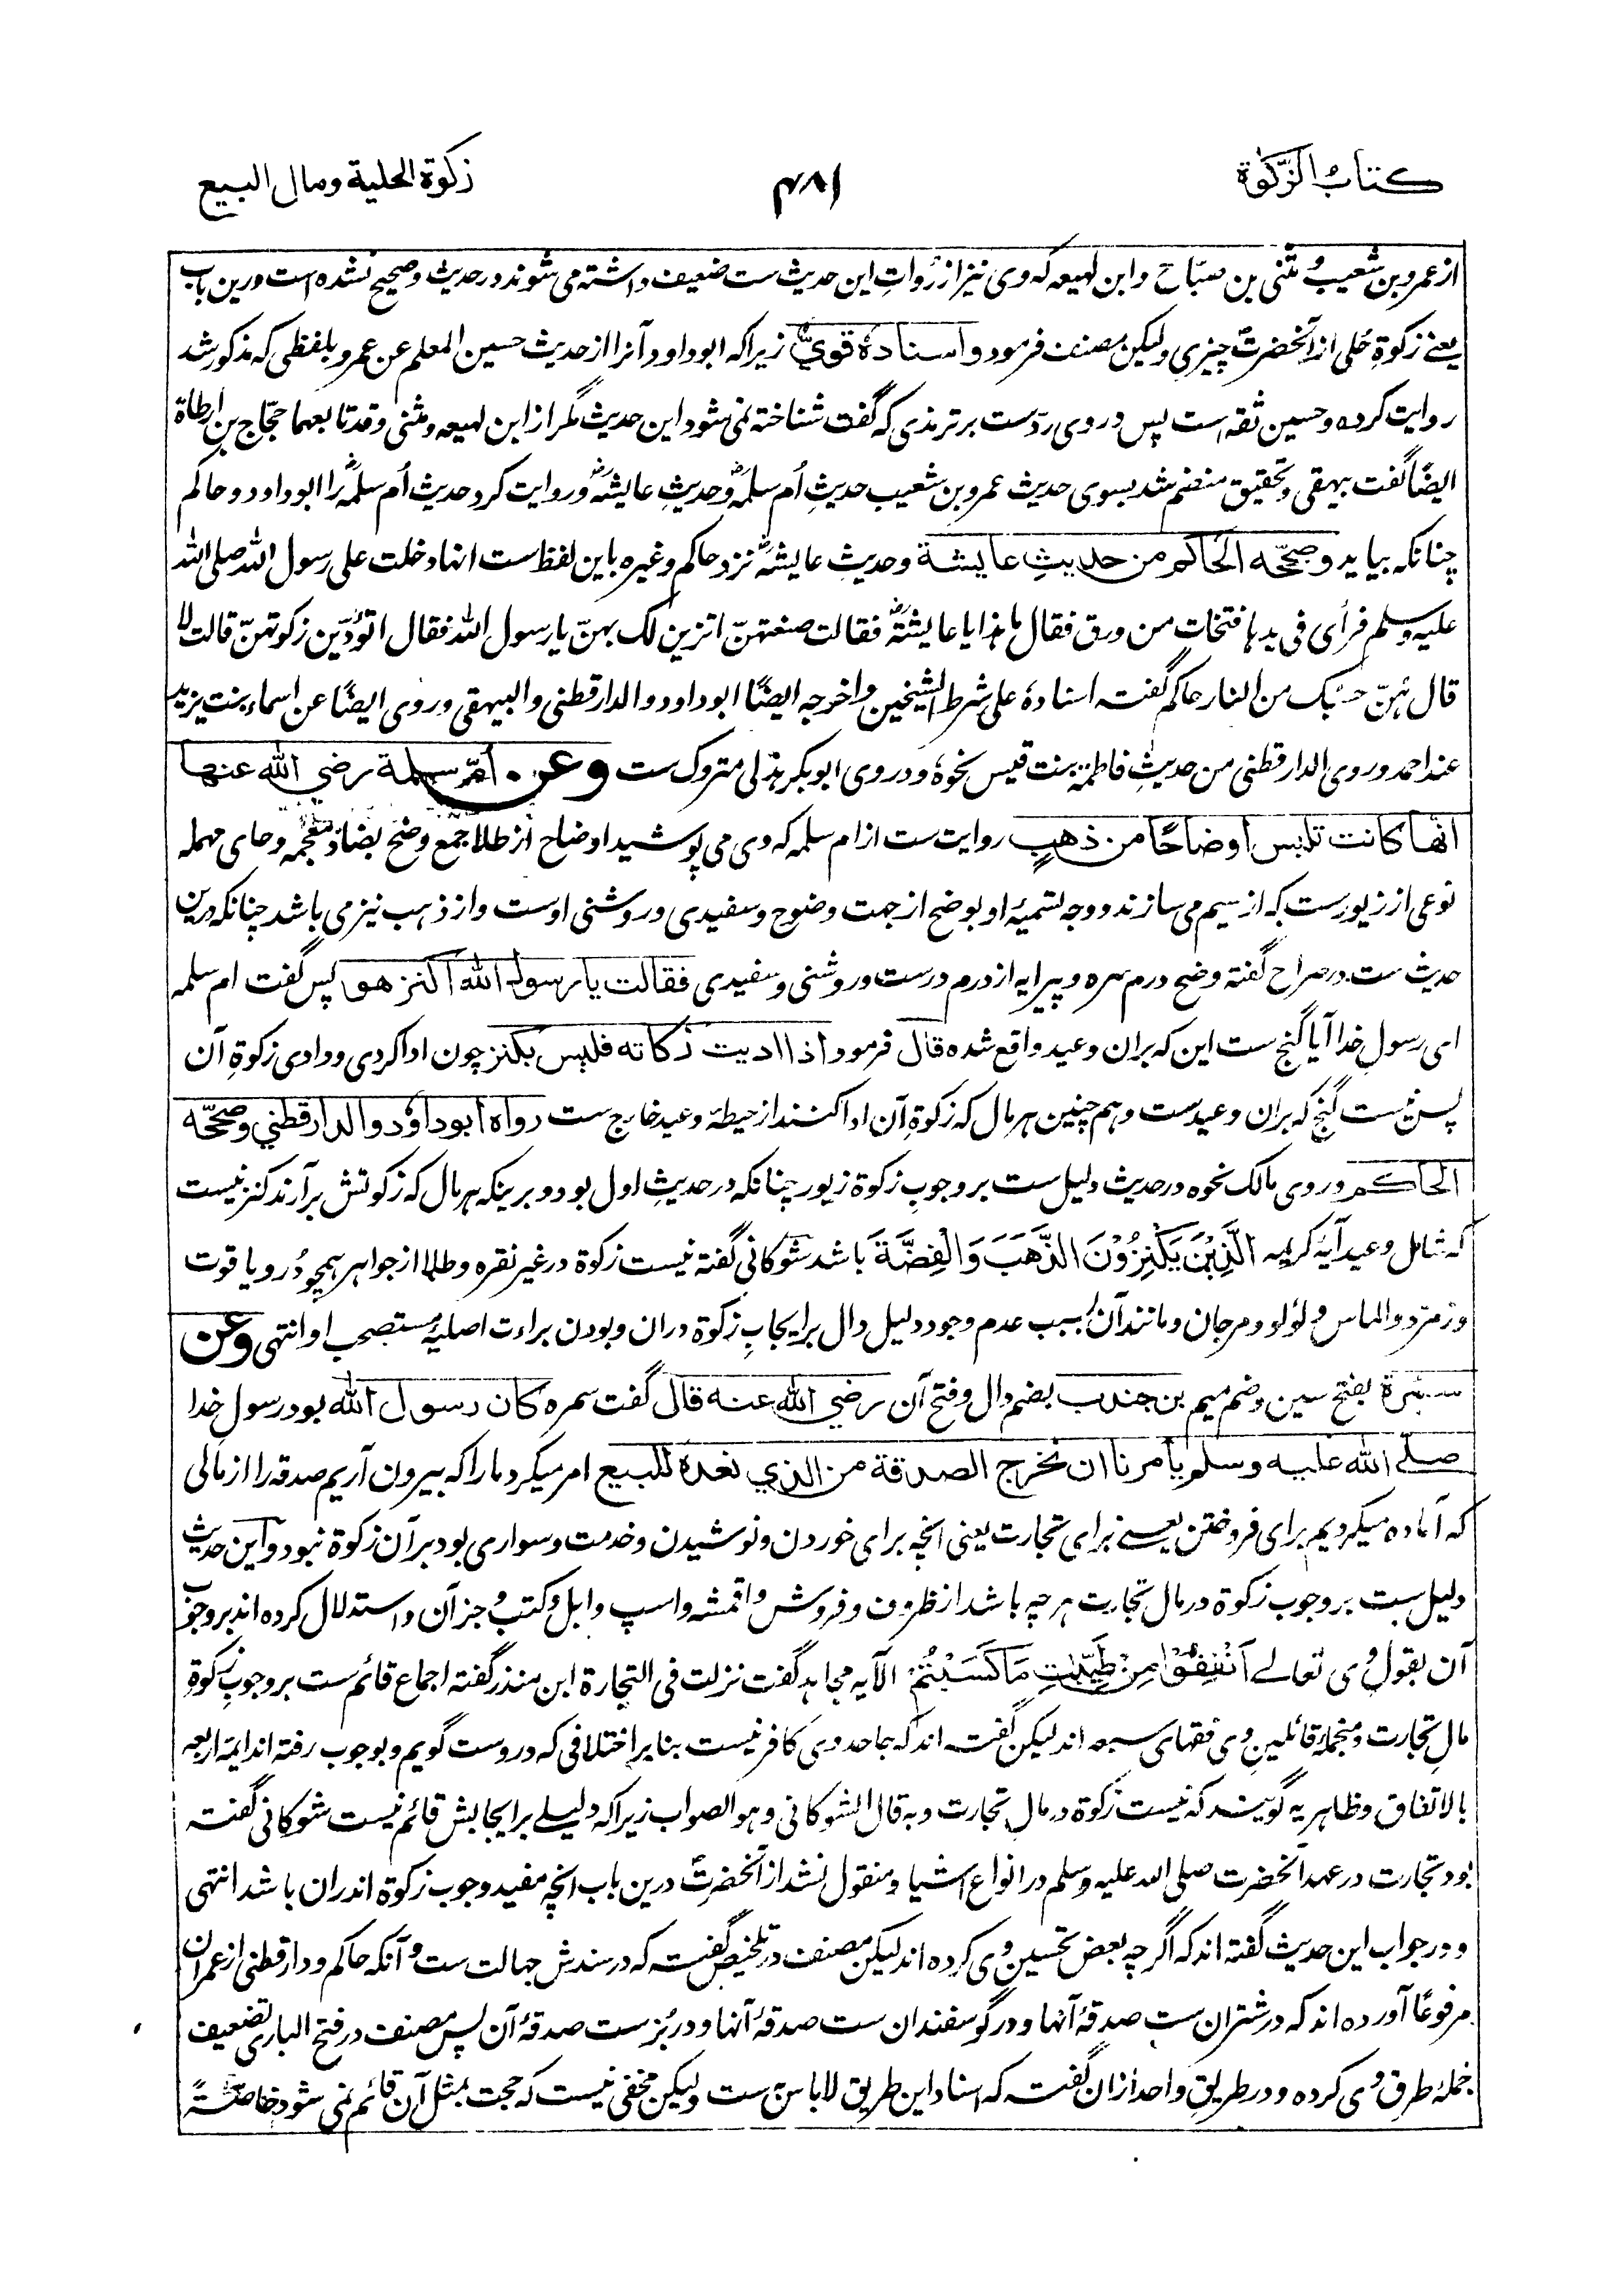 كتاب الزكوة
۴۸۱
زكوة الحلية ومال البيع
از عمرو بن شعیب و مثنی بن صباح و ابن لهیعه که وی نیز از رُواتِ این حدیث ست ضعیف داشته می شوند در حدیث و صحیح نشده است درین باب
یعنے زکوةِ حُلی از آنحضرت چیزی ولیکن مصنف فرمود واسناده قويٌّ زیرا که ابوداود آنرا از حدیث حسین المعلم عن عمرو بلفظی که مذکور شد
روایت کرده و حسین ثقه است پس در وی ردّست بر ترمذی که گفت شناخته نمی شود این حدیث مگر از ابن لهیعه و مثنی وقد تابعهما حجّاج بن ارطاة
ایضًا گفت بیهقی و تحقیق منضم شد بسوی حدیث عمرو بن شعیب حدیثِ اُم سلمهؓ و حدیثِ عایشهؓ و روایت کرد حدیث اُم سلمهؓ را ابوداود و حاکم
چنانکه بیاید وصحّحه الحاكم من حديثِ عايشة و حدیثِ عایشهؓ نزد حاکم و غیره باین لفظ ست انها دخلت علی رسول الله صلی الله
علیه وسلم فرأی فی یدها فتخاتٍ من ورق فقال ما هذا یا عایشةؓ فقالت صنعتهنّ اتزین لک بهنّ یا رسول الله فقال اتؤدّین زکوتهنّ قالت لا
قال هُنّ حسبک من النار حاکم گفته اسناده علی شرط الشیخین و اخرجه ایضًا ابوداود والدارقطنی والبیهقی و روی ایضًا عن اسماء بنت یزید
عند احمد و روی الدارقطنی من حدیثِ فاطمة بنت قیس نحوه و در وی ابوبکر هذلی متروک ست وعن أمّ سلمة رضي الله عنها
انّها كانت تلبس أوضاحًا من ذهبٍ روایت ست از ام سلمه که وی می پوشید اوضاح از طلا جمع وضح بضاد معجمه و حای مهمله
نوعی از زیورست که از سیم می سازند و وجه تسمیۀ او بوضح از جهت وضوح و سفیدی و روشنی اوست و از ذهب نیز می باشد چنانکه درین
حدیث ست در صراح گفته وضح درم سره و پیرایه از درم درست و روشنی و سفیدی فقالت يا رسول الله أكنز هو پس گفت ام سلمه
ای رسولِ خدا آیا گنج ست این که بران وعید واقع شده قال فرمود اذا اديت زكاته فليس بكنز چون ادا کردی و دادی زکوةِ آن
پس نیست گنج که بران وعیدست و هم چنین هر مال که زکوةِ آن ادا کنند از حیطۀ وعید خارج ست رواه أبوداؤد والدارقطني وصحّحه
الحاكم و روی مالک نحوه در حدیث دلیل ست بر وجوبِ زکوة زیور چنانکه در حدیثِ اول بود و برینکه هر مال که زکوتش برآرند کنز نیست
که شامل وعید آیۀ کریمه الَّذِيْنَ يَكْنِزُوْنَ الذَّهَبَ وَالْفِضَّةَ باشد شوکانی گفته نیست زکوة در غیر نقره و طلا از جواهر همچو دُر و یاقوت
و زمرد و الماس و لؤلؤ و مرجان و مانند آن بسبب عدم وجود دلیل دال بر ایجابِ زکوة دران و بودن براءت اصلیۀ مستصحب او انتهی وعن
سمرة بفتح سین و ضم میم بن جندب بضم دال و فتح آن رضي الله عنه قال گفت سمره كان رسول الله بود رسولِ خدا
صلے الله عليه وسلم يأمرنا ان نخرج الصدقة من الذي نعده للبيع امر میکرد مارا که بیرون آریم صدقه را از مالی
که آماده میکردیم برای فروختن یعنے برای تجارت یعنی انچه برای خوردن و نوشیدن و خدمت و سواری بود بر آن زکوة نبود و این حدیث
دلیل ست بر وجوب زکوة در مال تجارت هر چه باشد از ظروف و فروش و اقمشه و اسپ و ابل و کتب و جز آن و استدلال کرده اند بر وجوب
آن بقول وی تعالے اَنْفِقُوْا مِنْ طَيِّبٰتِ مَا كَسَبْتُمْ الآیه مجاهد گفت نزلت فی التجارة ابن منذر گفته اجماع قائم ست بر وجوبِ زکوةِ
مالِ تجارت و منجملۀ قائلینِ وی فقهای سبعه اند لیکن گفته اند که جاحد وی کافر نیست بنا بر اختلافی که دروست گویم و بوجوب رفته اند ایمۀ اربعه
بالاتفاق و ظاهریه گویند که نیست زکوة در مالِ تجارت و به قال الشوکانی و هو الصواب زیرا که دلیلے بر ایجابش قائم نیست شوکانی گفته
بود تجارت در عهد آنحضرت صلی الله علیه وسلم در انواع اشیا و منقول نشد از آنحضرت درین باب انچه مفید وجوبِ زکوة اندران باشد انتهی
و در جواب این حدیث گفته اند که اگر چه بعض تحسین وی کرده اند لیکن مصنف در تلخیص گفته که در سندش جهالت ست و آنکه حاکم و دارقطنی از عمران
مرفوعًا آورده اند که در شتران ست صدقۀ آنها و در گوسفندان ست صدقۀ آنها و در بُز ست صدقۀ آن پس مصنف در فتح الباری تضعیف
جملۀ طرق وی کرده و در طریقِ واحد ازان گفته که اسناد این طریق لا باس به ست ولیکن مخفی نیست که حجت بمثل آن قائم نمی شود خاصةً